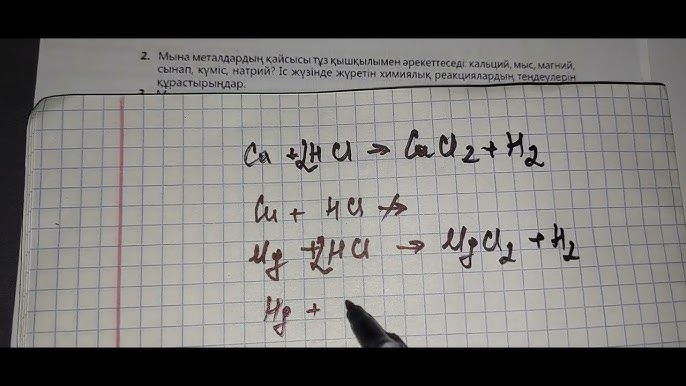 2. Мына металдардың қайсысы тұз қышқылымен әрекеттеседі: кальций, мыс, магний,
сынап, күміс, натрий? Іс жүзінде жүретін химиялық реакциялардың теңдеулерін
құрастырыңдар.
Ca + 2HCl → CaCl2 + H2
Cu + HCl ↛
Mg + 2HCl → MgCl2 + H2
Hg +